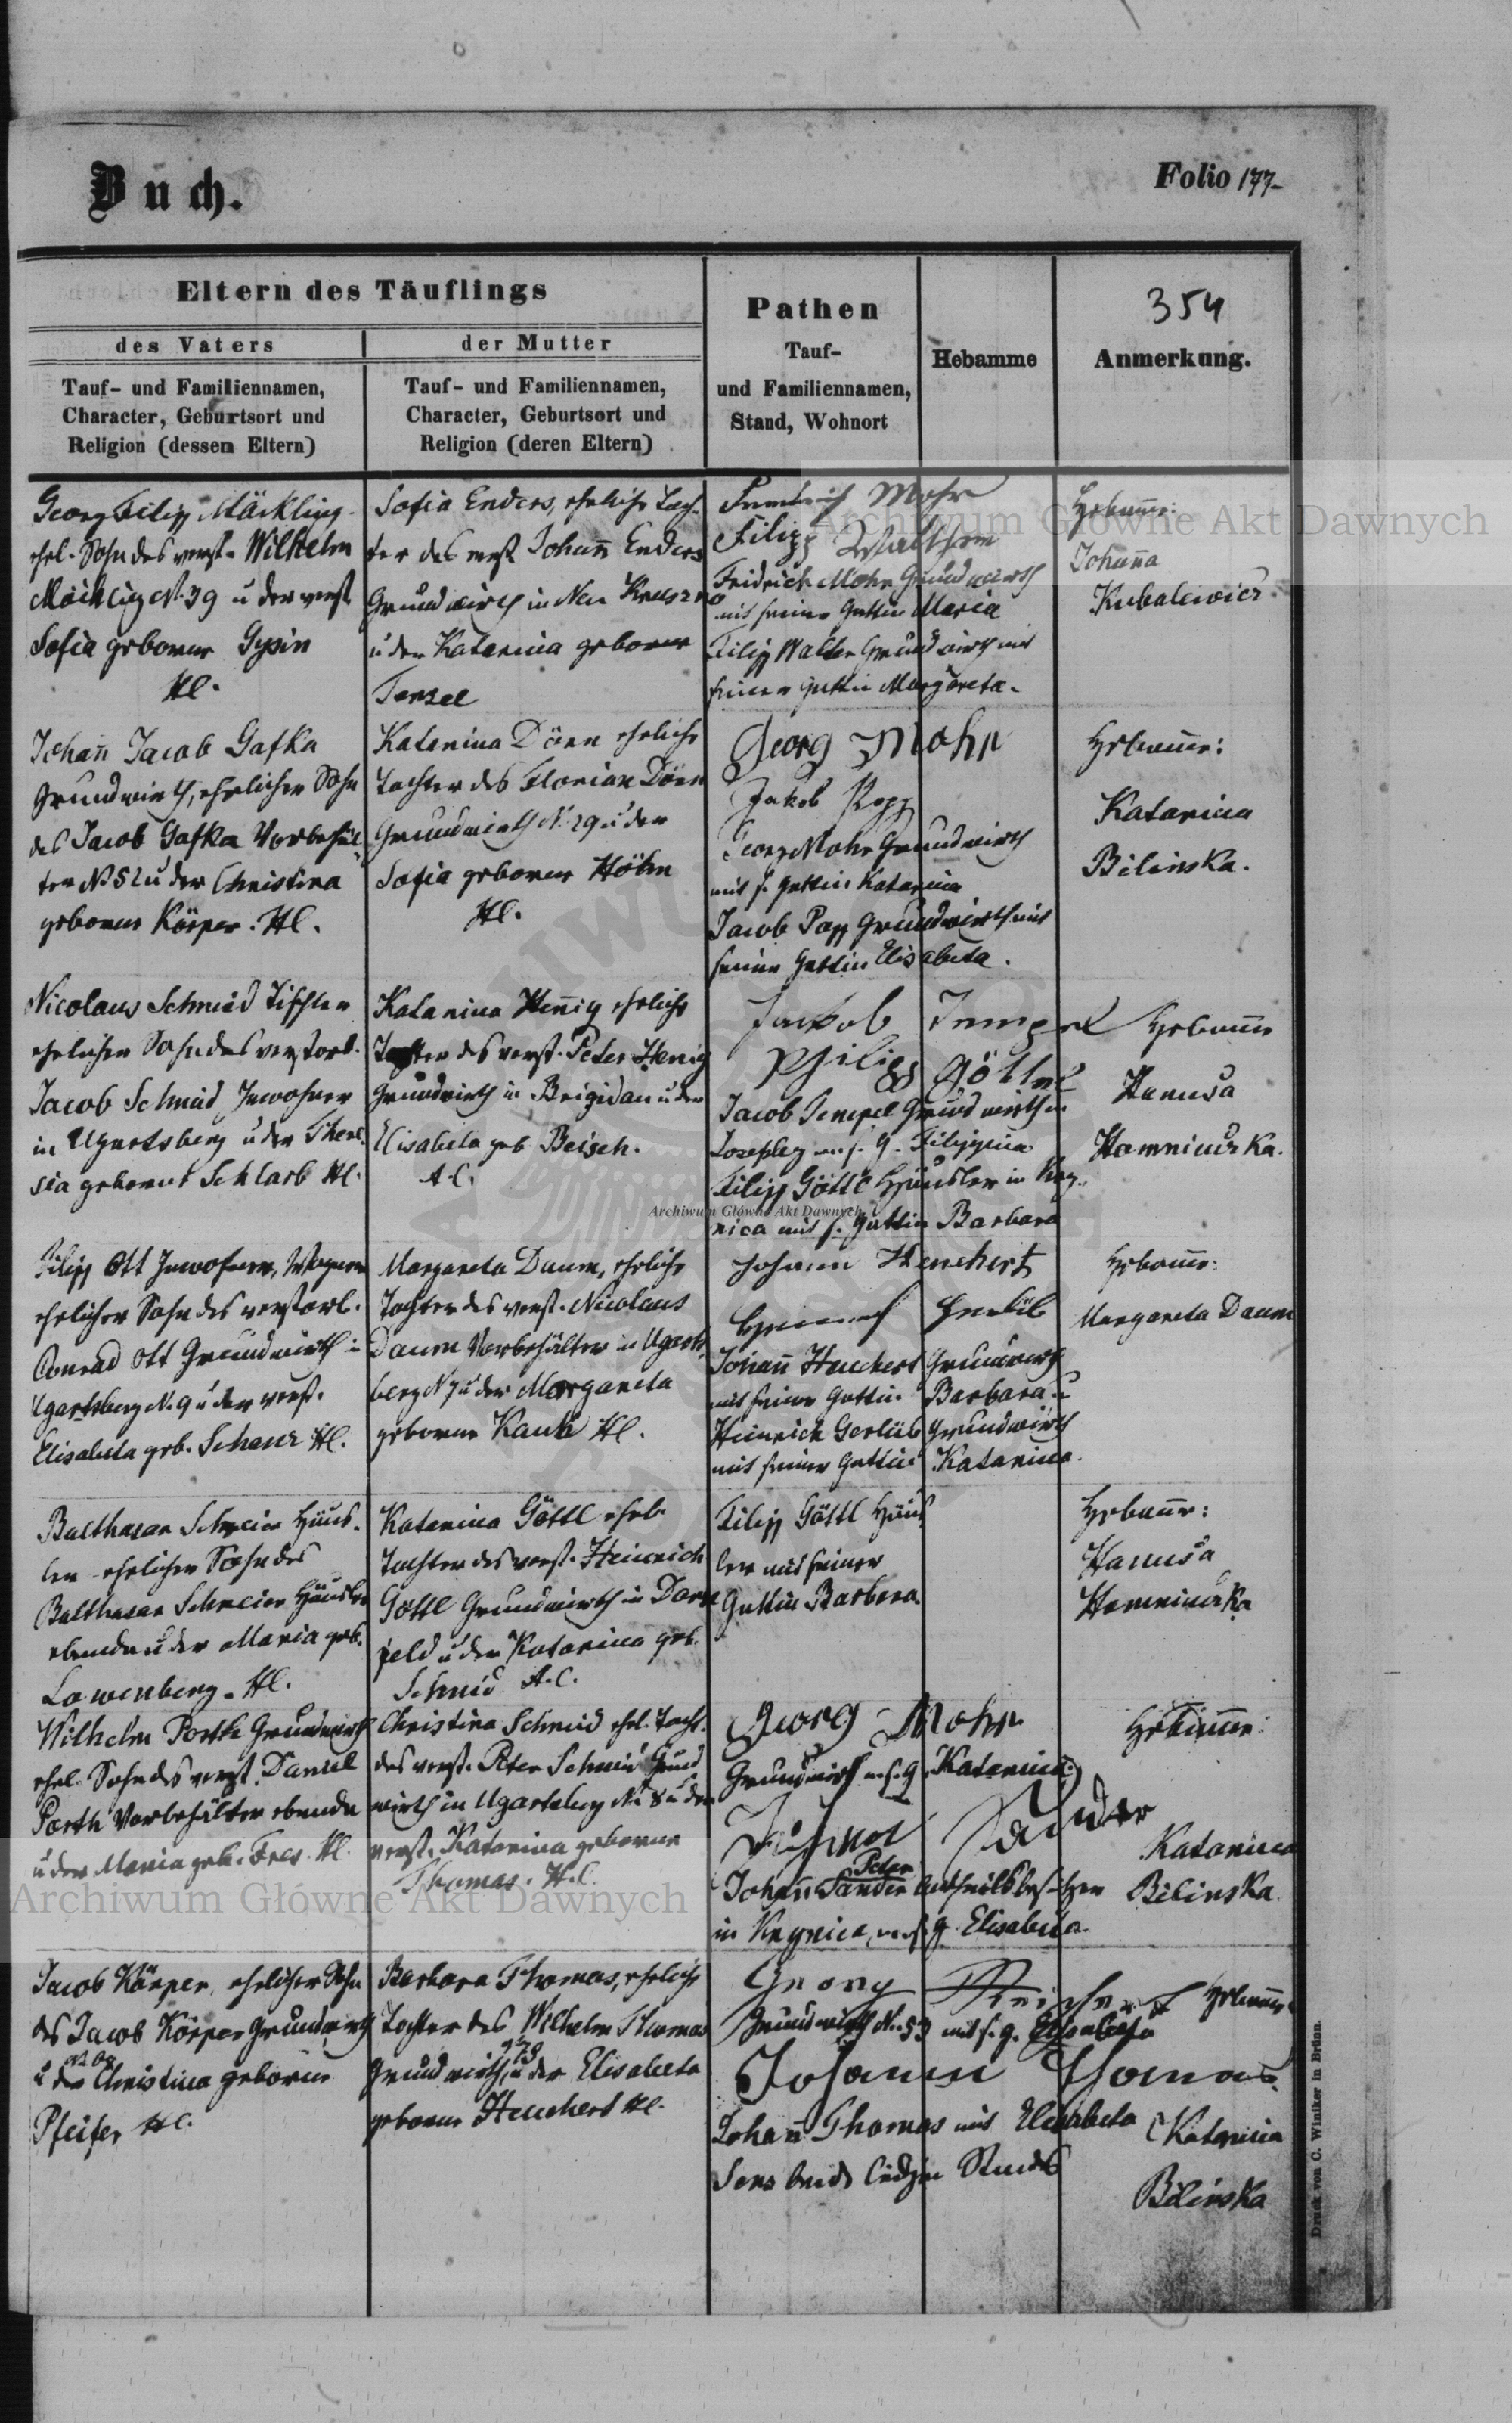 Buch.
Folio 177.
Eltern des Täuflings
des Vaters
der Mutter
Tauf- und Familiennamen,
Character, Geburtsort und
Religion (dessen Eltern)
Tauf- und Familiennamen,
Character, Geburtsort und
Religion (deren Eltern)
Pathen
Tauf-
und Familiennamen,
Stand, Wohnort
Hebamme
354
Anmerkung.
Georg Filipp Mäckling
ehel. Sohn des verst. Wilhelm
Mäckling N. 39 u der verst
Sofia geborene Gysin
HC.
Sofia Enders, eheliche Toch-
ter des verst Johann Enders
Grundwirth in Neu
u der Katarina geborene
Friedrich Mohr
Filipp Walther
Fridrich Mohr Grundwirth
mit seiner Gattin Maria
Filipp Walter Grundwirth mit
seiner Gattin Margareta.
Hebamme:
Johanna
Kubalewicz
Johann Jacob Gafka
Grundwirth, ehelicher Sohn
des Jacob Gafka Vorbehäl-
ter N 52 u der Christina
geborene Körper. HC.
Katarina Dörn eheliche
Tochter des Florian Dörn
Grundwirth N. 29 u der
Sofia geborene Höhn
HC.
Georg Mohr
Jakob Popp
Georg Mohr Grundwirth
mit s. Gattin Katarina
Jacob Popp Grundwirth mit
seiner Gattin Elisabeta.
Hebamme:
Katarina
Bilinska.
Nicolaus Schmid Tischler
ehelicher Sohn des verstorb.
Jacob Schmid Inwohner
in Ugartsberg u der There-
sia geborene Schlarb HC.
Katarina Hennig eheliche
Tochter des verst. Peter Henig
Grundwirth in Brigidau u der
Elisabeta geb Beisch.
A.C.
Jakob Tempel
Philipp Göttel
Jacob Tempel Grundwirth in
Josefsberg m. s. G. Filippina
Filipp Göttl Häusler in Kry-
nica mit s. Gattin Barbara
Hebamme
Hanusa
Hamniuczka.
Filipp Ott Inwohner, Wagner
ehelicher Sohn des verstorb.
Conrad Ott Grundwirth in
Ugartsberg N. 9 u der verst.
Elisabeta geb. Schanz HC.
Margareta Daum, eheliche
Tochter des verst. Nicolaus
Daum Vorbehälter in Ugarts-
berg N 7 u der Margareta
geborene Kauh HC.
Johann Heuchert
Johann Heuchert Grundwirth
mit seiner Gattin Barbara u
Heinrich Gerlüb Grundwirth
mit seiner Gattin Katarina.
Hebamme:
Margareta Daum
Balthasar Schreier Häus-
ler ehelicher Sohn des
Balthasar Schreier Häusler
ebenda u der Maria geb.
Lowenberg. HC.
Katarina Göttl ehel.
Tochter des verst. Heinrich
Göttl Grundwirth in Dorn
feld u der Katarina geb.
Schmid A.C.
Filipp Göttl Häus
ler mit seiner
Gattin Barbara
Hebamme:
Hanusa
Hamniuczka
Wilhelm Porth Grundwirth
ehel. Sohn des verst. Daniel
Porth Vorbehälter ebenda
u der Maria geb. Fres HC.
Christina Schmid ehel. Tocht.
des verst. Peter Schmid Grund
wirth in Ugartsberg N. 8 u der
verst. Katarina geborene
Thomas. H.C.
Georg Mohr
Grundwirth m. s. G. Katarina
Sander
Peter
Johann Sander Antheilsbesitzer
in Krynica, m. s. G. Elisabeta.
Hebamme:
Katarina
Bilinska
Jacob Körper, ehelicher Sohn
des Jacob Körper Grundwirth
u der Christina geborene
Pfeifer HC.
Barbara Thomas, eheliche
Tochter des Wilhelm Thomas
Grundwirth, u der Elisabeta
geborene Heuchert HC.
Georg
Grundwirth N. 53 mit s. G. Elisabeta
Johann Thomas
Johann Thomas mit Elisabeta
beide ledigen Standes
Hebamme:
Katarina
Bilinska
Druck von C. Winiker in Brünn.
Archiwum Główne Akt Dawnych
Archiwum Główne Akt Dawnych
Archiwum Główne Akt Dawnych